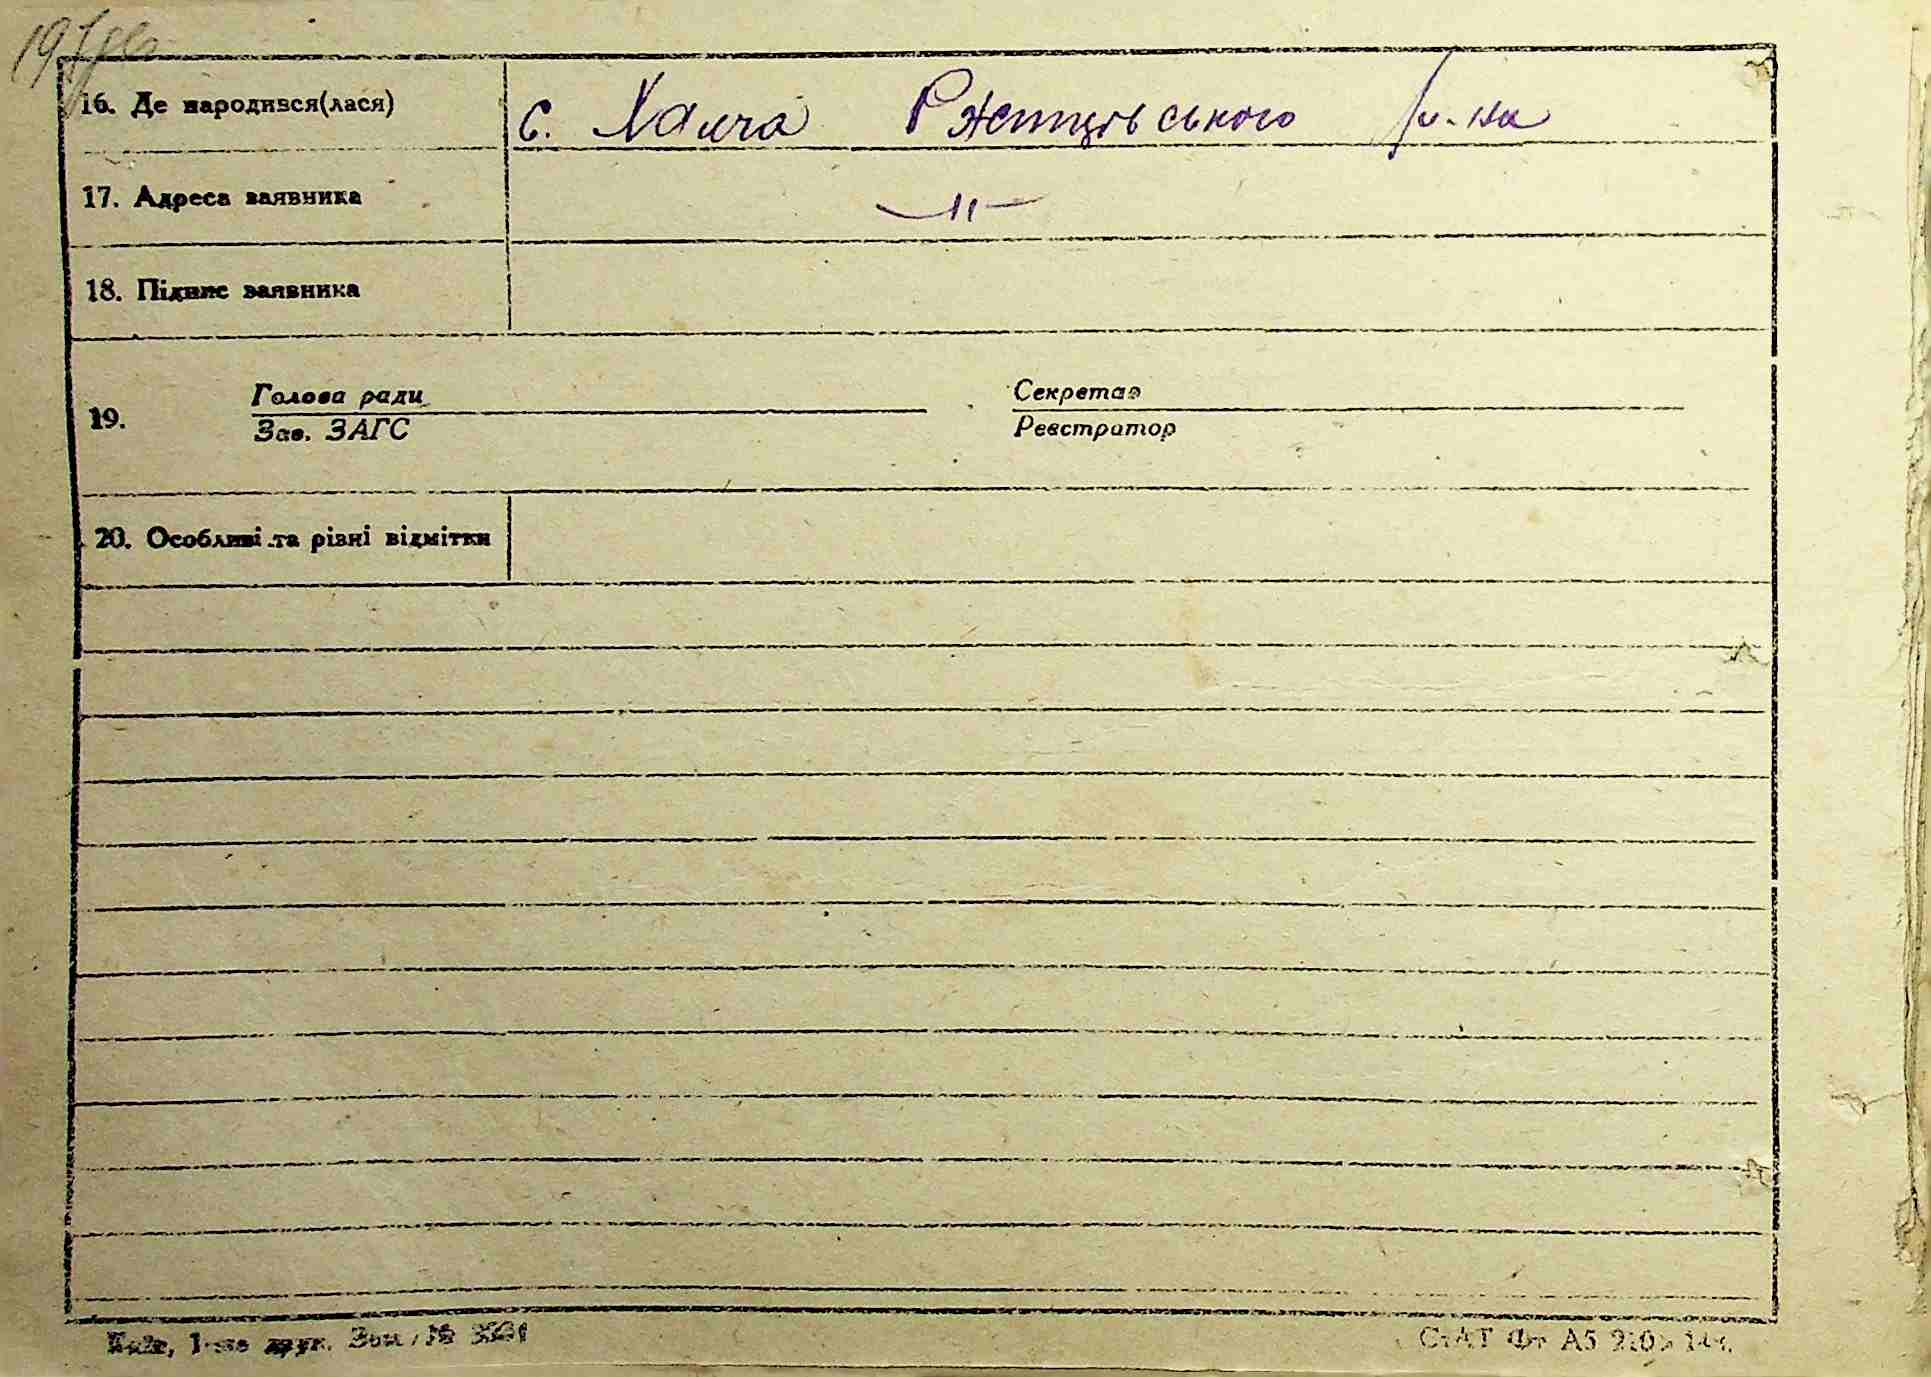 16. Де народився(лася) с. Халча Ржищівського р-на
17. Адреса заявника —〃—
18. Підпис заявника
19. Голова ради Секретар
Зав. ЗАГС Реєстратор
20. Особливі та різні відмітки
Київ, друк. Зам. №
СтАТ Фт А5